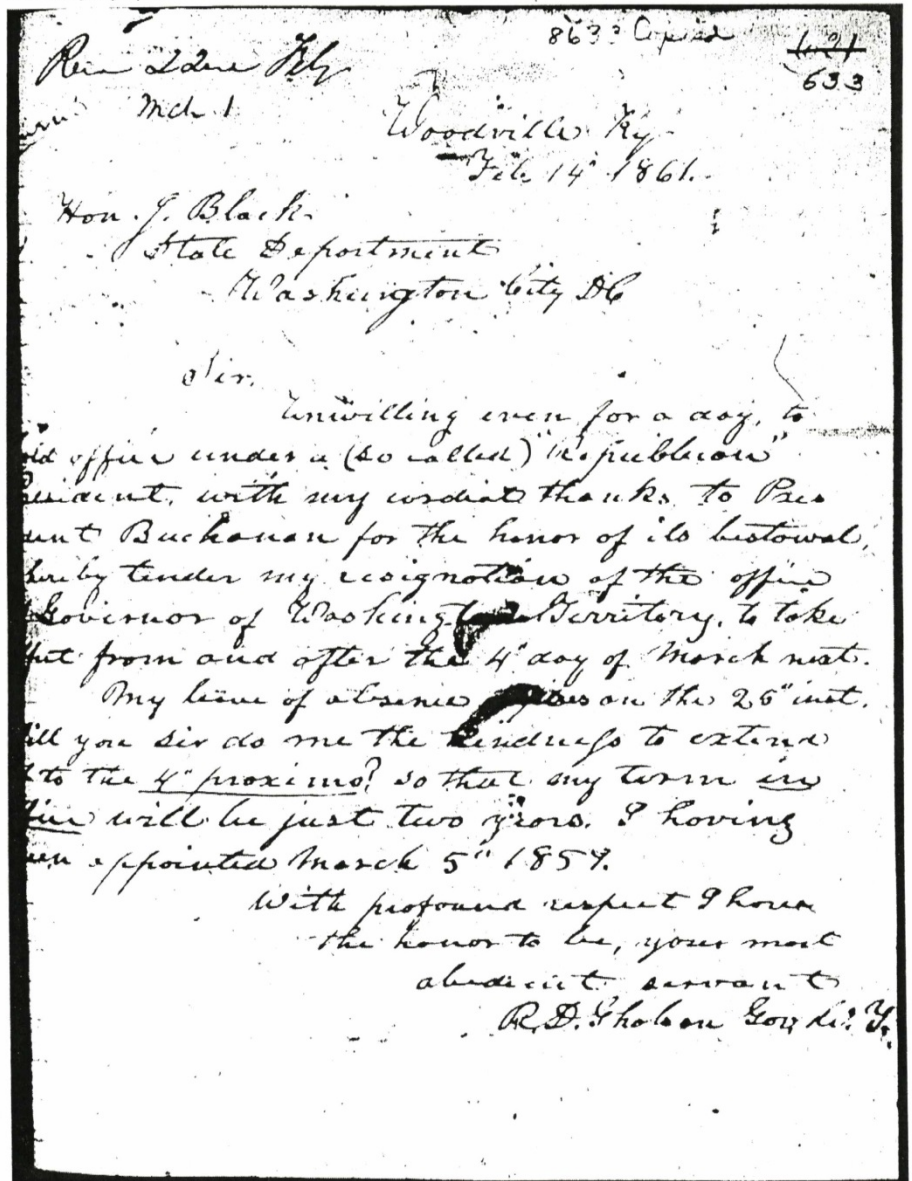 8633 Copied
633
Rec 22nd Feby
Mch 1
Woodville Ky
Feb 14" 1861.
Hon. J. Black
State Department
Washington City DC
Sir.
Unwilling even for a day, to
office under a (so called) "Republican"
esident, with my cordial thanks to Pres
dent Buchanan for the honor of its bestowal,
hereby tender my resignation of the office
Governor of Washington Territory, to take
from and after the 4" day of March next.
My leave of absence on the 25" inst.
ill you Sir do me the kindness to extend
to the 4" proximo? so that my term in
will be just two years. I having
een appointed March 5" 1859.
With profound respect I have
the honor to be, your most
obedient servant
R. D. Gholson Gov.